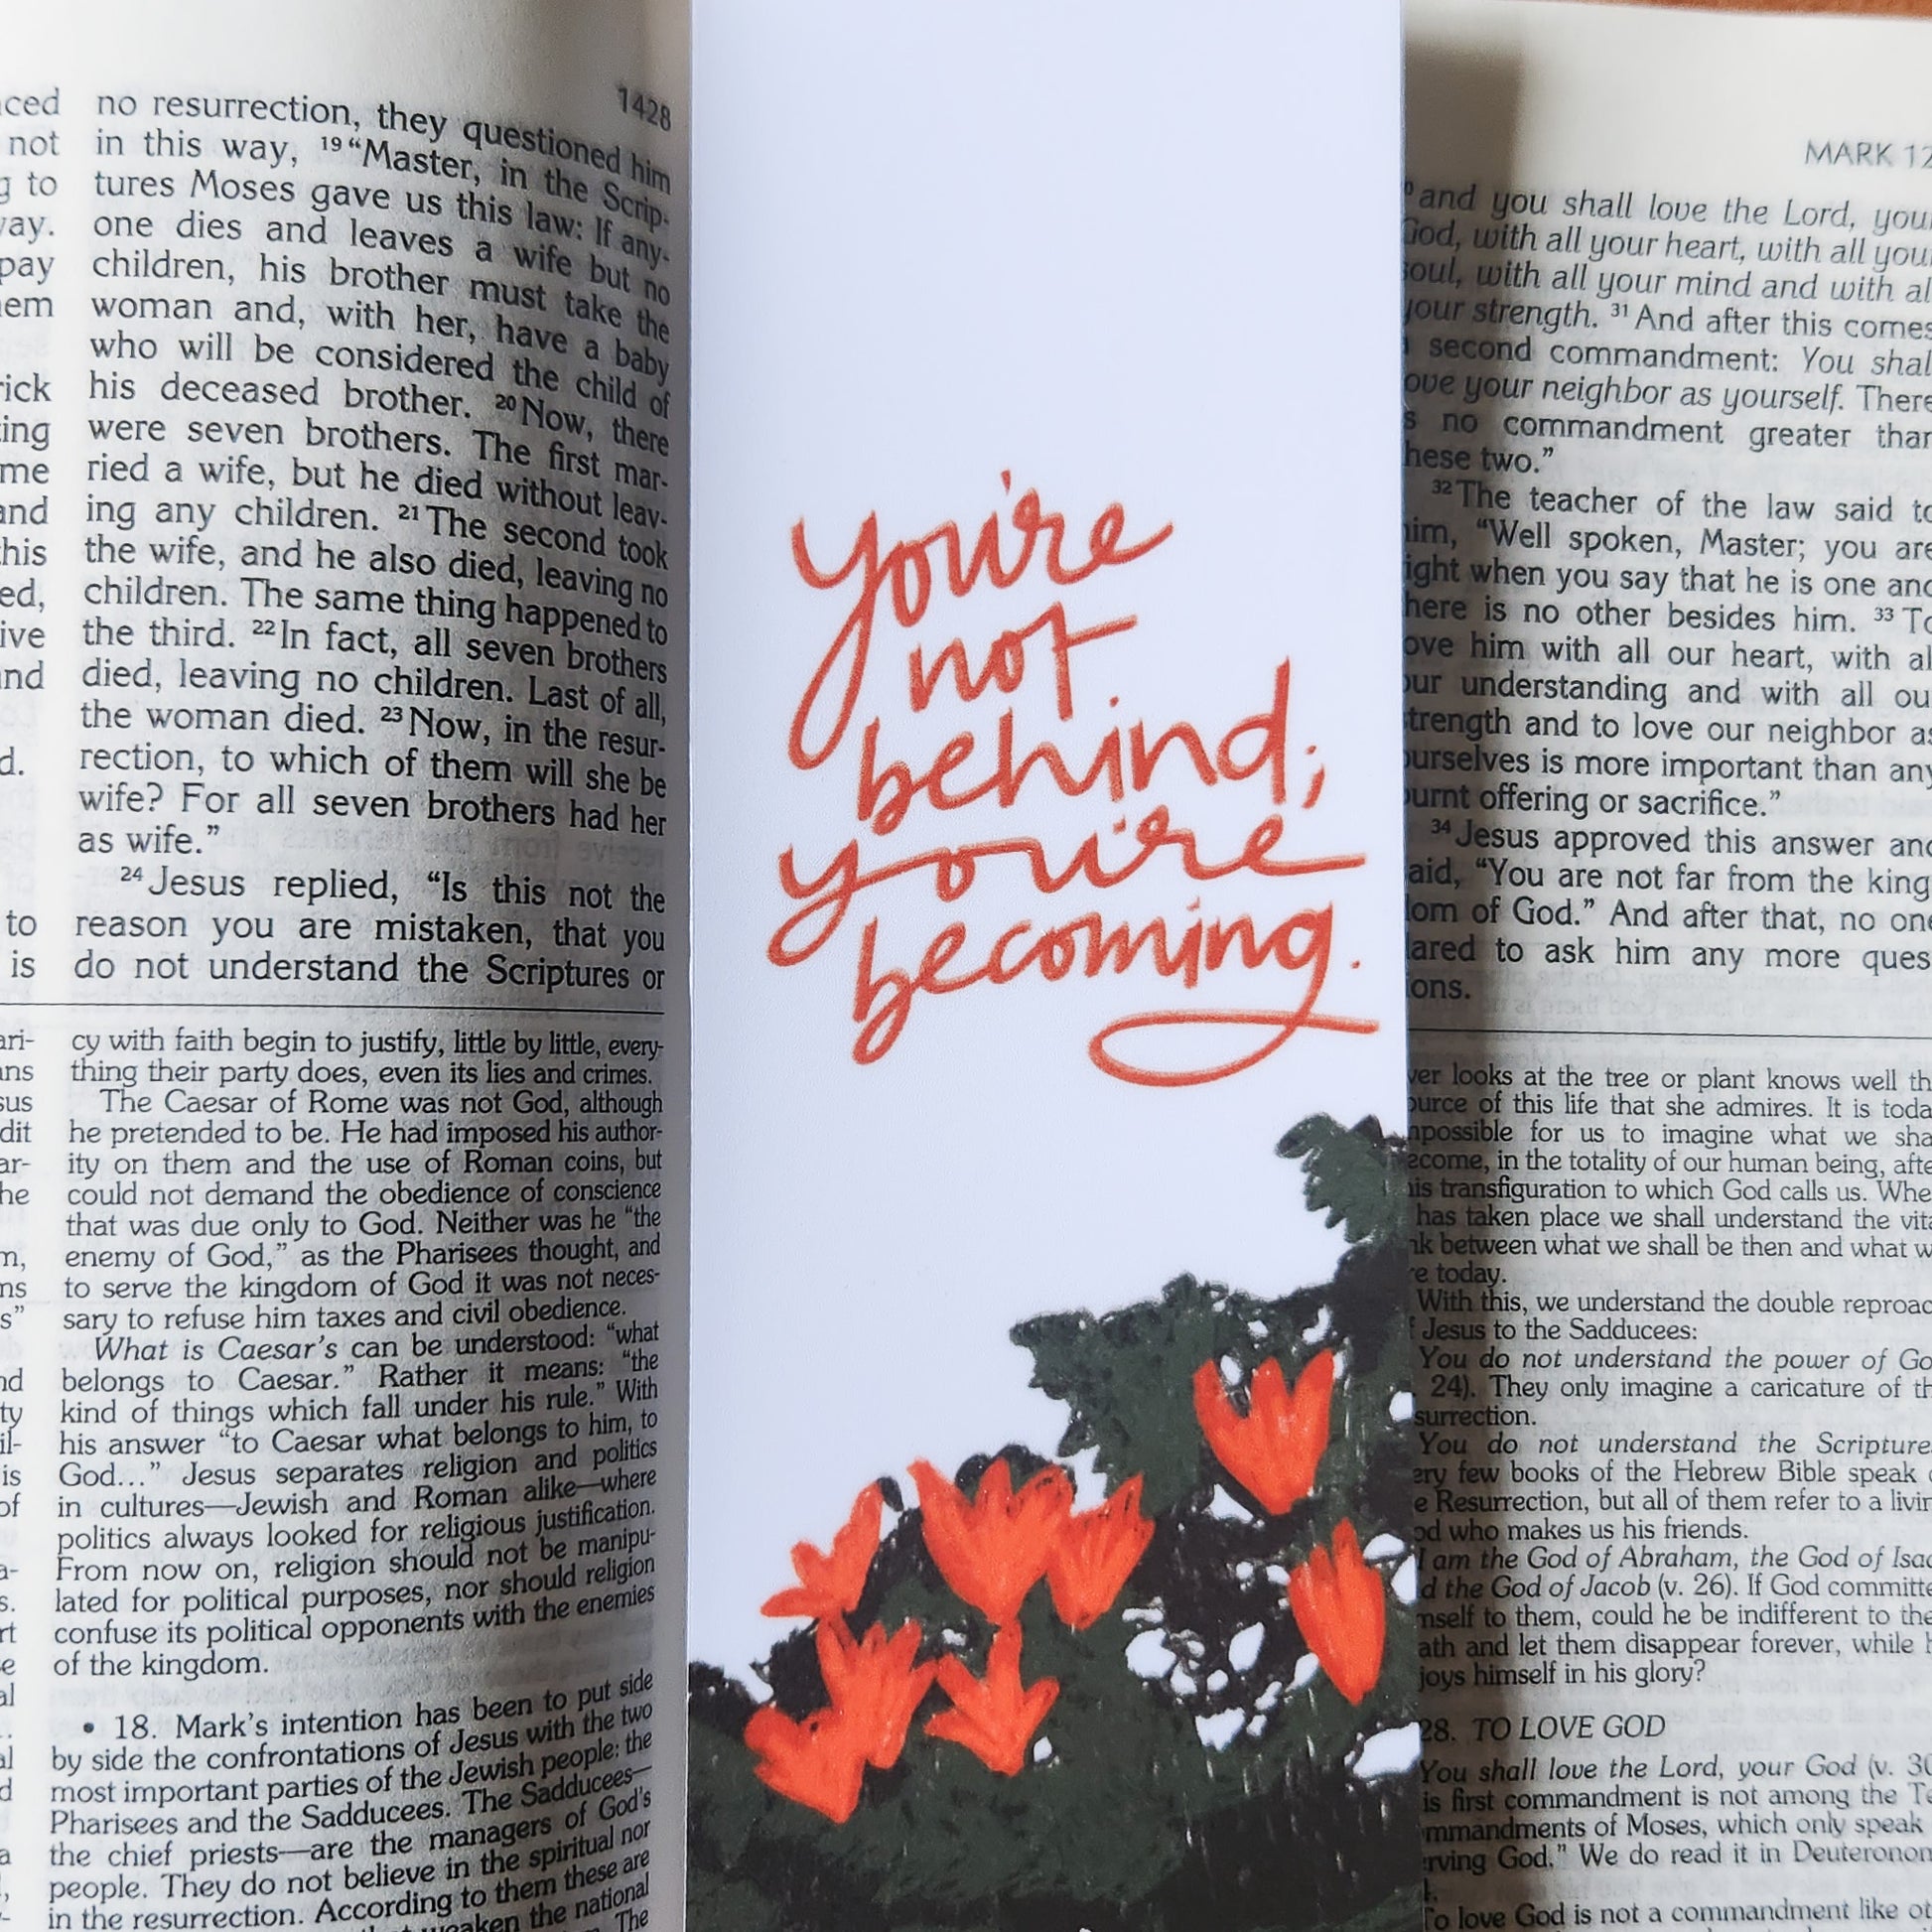 1428
no resurrection, they questioned him
in this way, 19 “Master, in the Scrip-
tures Moses gave us this law: If any-
one dies and leaves a wife but no
children, his brother must take the
woman and, with her, have a baby
who will be considered the child of
his deceased brother. 20 Now, there
were seven brothers. The first mar-
ried a wife, but he died without leav-
ing any children. 21 The second took
the wife, and he also died, leaving no
children. The same thing happened to
the third. 22 In fact, all seven brothers
died, leaving no children. Last of all,
the woman died. 23 Now, in the resur-
rection, to which of them will she be
wife? For all seven brothers had her
as wife.”
24 Jesus replied, “Is this not the
reason you are mistaken, that you
do not understand the Scriptures or
cy with faith begin to justify, little by little, every-
thing their party does, even its lies and crimes.
The Caesar of Rome was not God, although
he pretended to be. He had imposed his author-
ity on them and the use of Roman coins, but
could not demand the obedience of conscience
that was due only to God. Neither was he “the
enemy of God,” as the Pharisees thought, and
to serve the kingdom of God it was not neces-
sary to refuse him taxes and civil obedience.
What is Caesar’s can be understood: “what
belongs to Caesar.” Rather it means: “the
kind of things which fall under his rule.” With
his answer “to Caesar what belongs to him, to
God...” Jesus separates religion and politics
in cultures—Jewish and Roman alike—where
politics always looked for religious justification.
From now on, religion should not be manipu-
lated for political purposes, nor should religion
confuse its political opponents with the enemies
of the kingdom.
• 18. Mark’s intention has been to put side
by side the confrontations of Jesus with the two
most important parties of the Jewish people: the
Pharisees and the Sadducees. The Sadducees—
the chief priests—are the managers of God’s
people. They do not believe in the spiritual nor
in the resurrection. According to them these are
the national
The
you're
not
behind;
you're
becoming.
MARK 12
and you shall love the Lord, your
God, with all your heart, with all your
soul, with all your mind and with all
your strength. 31 And after this comes
second commandment: You shall
love your neighbor as yourself. There
no commandment greater than
these two.”
32 The teacher of the law said to
him, “Well spoken, Master; you are
right when you say that he is one and
there is no other besides him. 33 To
love him with all our heart, with all
our understanding and with all our
strength and to love our neighbor as
ourselves is more important than any
burnt offering or sacrifice.”
34 Jesus approved this answer and
said, “You are not far from the king-
dom of God.” And after that, no one
dared to ask him any more ques-
ions.
looks at the tree or plant knows well
of this life that she admires. It is
for us to imagine what we
in the totality of our human being,
transfiguration to which God calls us.
has taken place we shall understand the
between what we shall be then and what
today.
With this, we understand the double
Jesus to the Sadducees:
You do not understand the power of
24). They only imagine a caricature of

You do not understand the
few books of the Hebrew Bible speak
Resurrection, but all of them refer to a
who makes us his friends.
I am the God of Abraham, the God of
the God of Jacob (v. 26). If God
to them, could he be indifferent to
and let them disappear forever, while
himself in his glory?
28. TO LOVE GOD
You shall love the Lord, your God (v.
first commandment is not among the
of Moses, which only speak
God.” We do read it in
To love God is not a commandment like